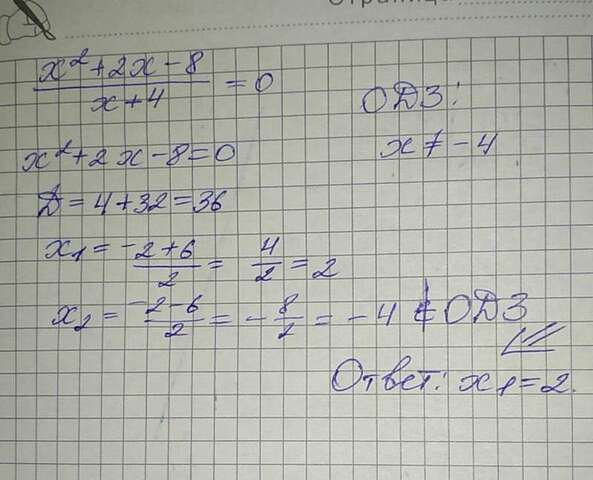 Страница
x² + 2x - 8
x + 4
= 0
ОДЗ:
x ≠ -4
x² + 2x - 8 = 0
D = 4 + 32 = 36
x₁ = (-2 + 6)/2 = 4/2 = 2
x₂ = (-2 - 6)/2 = -8/2 = -4 ∉ ОДЗ
Ответ: x₁ = 2.